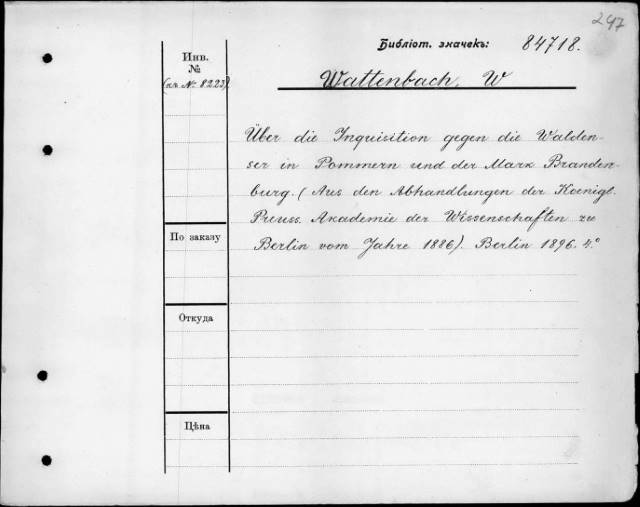 247
Библіот. значекъ: 84718.
Инв.
№
(къ № 8223)
Wattenbach, W
Über die Inquisition gegen die Walden-
ser in Pommern und der Mark Branden-
burg. (Aus den Abhandlungen der Koenigl.
Preuss. Akademie der Wissenschaften zu
Berlin vom Jahre 1886). Berlin 1896. 4.°
По заказу
Откуда
Цѣна